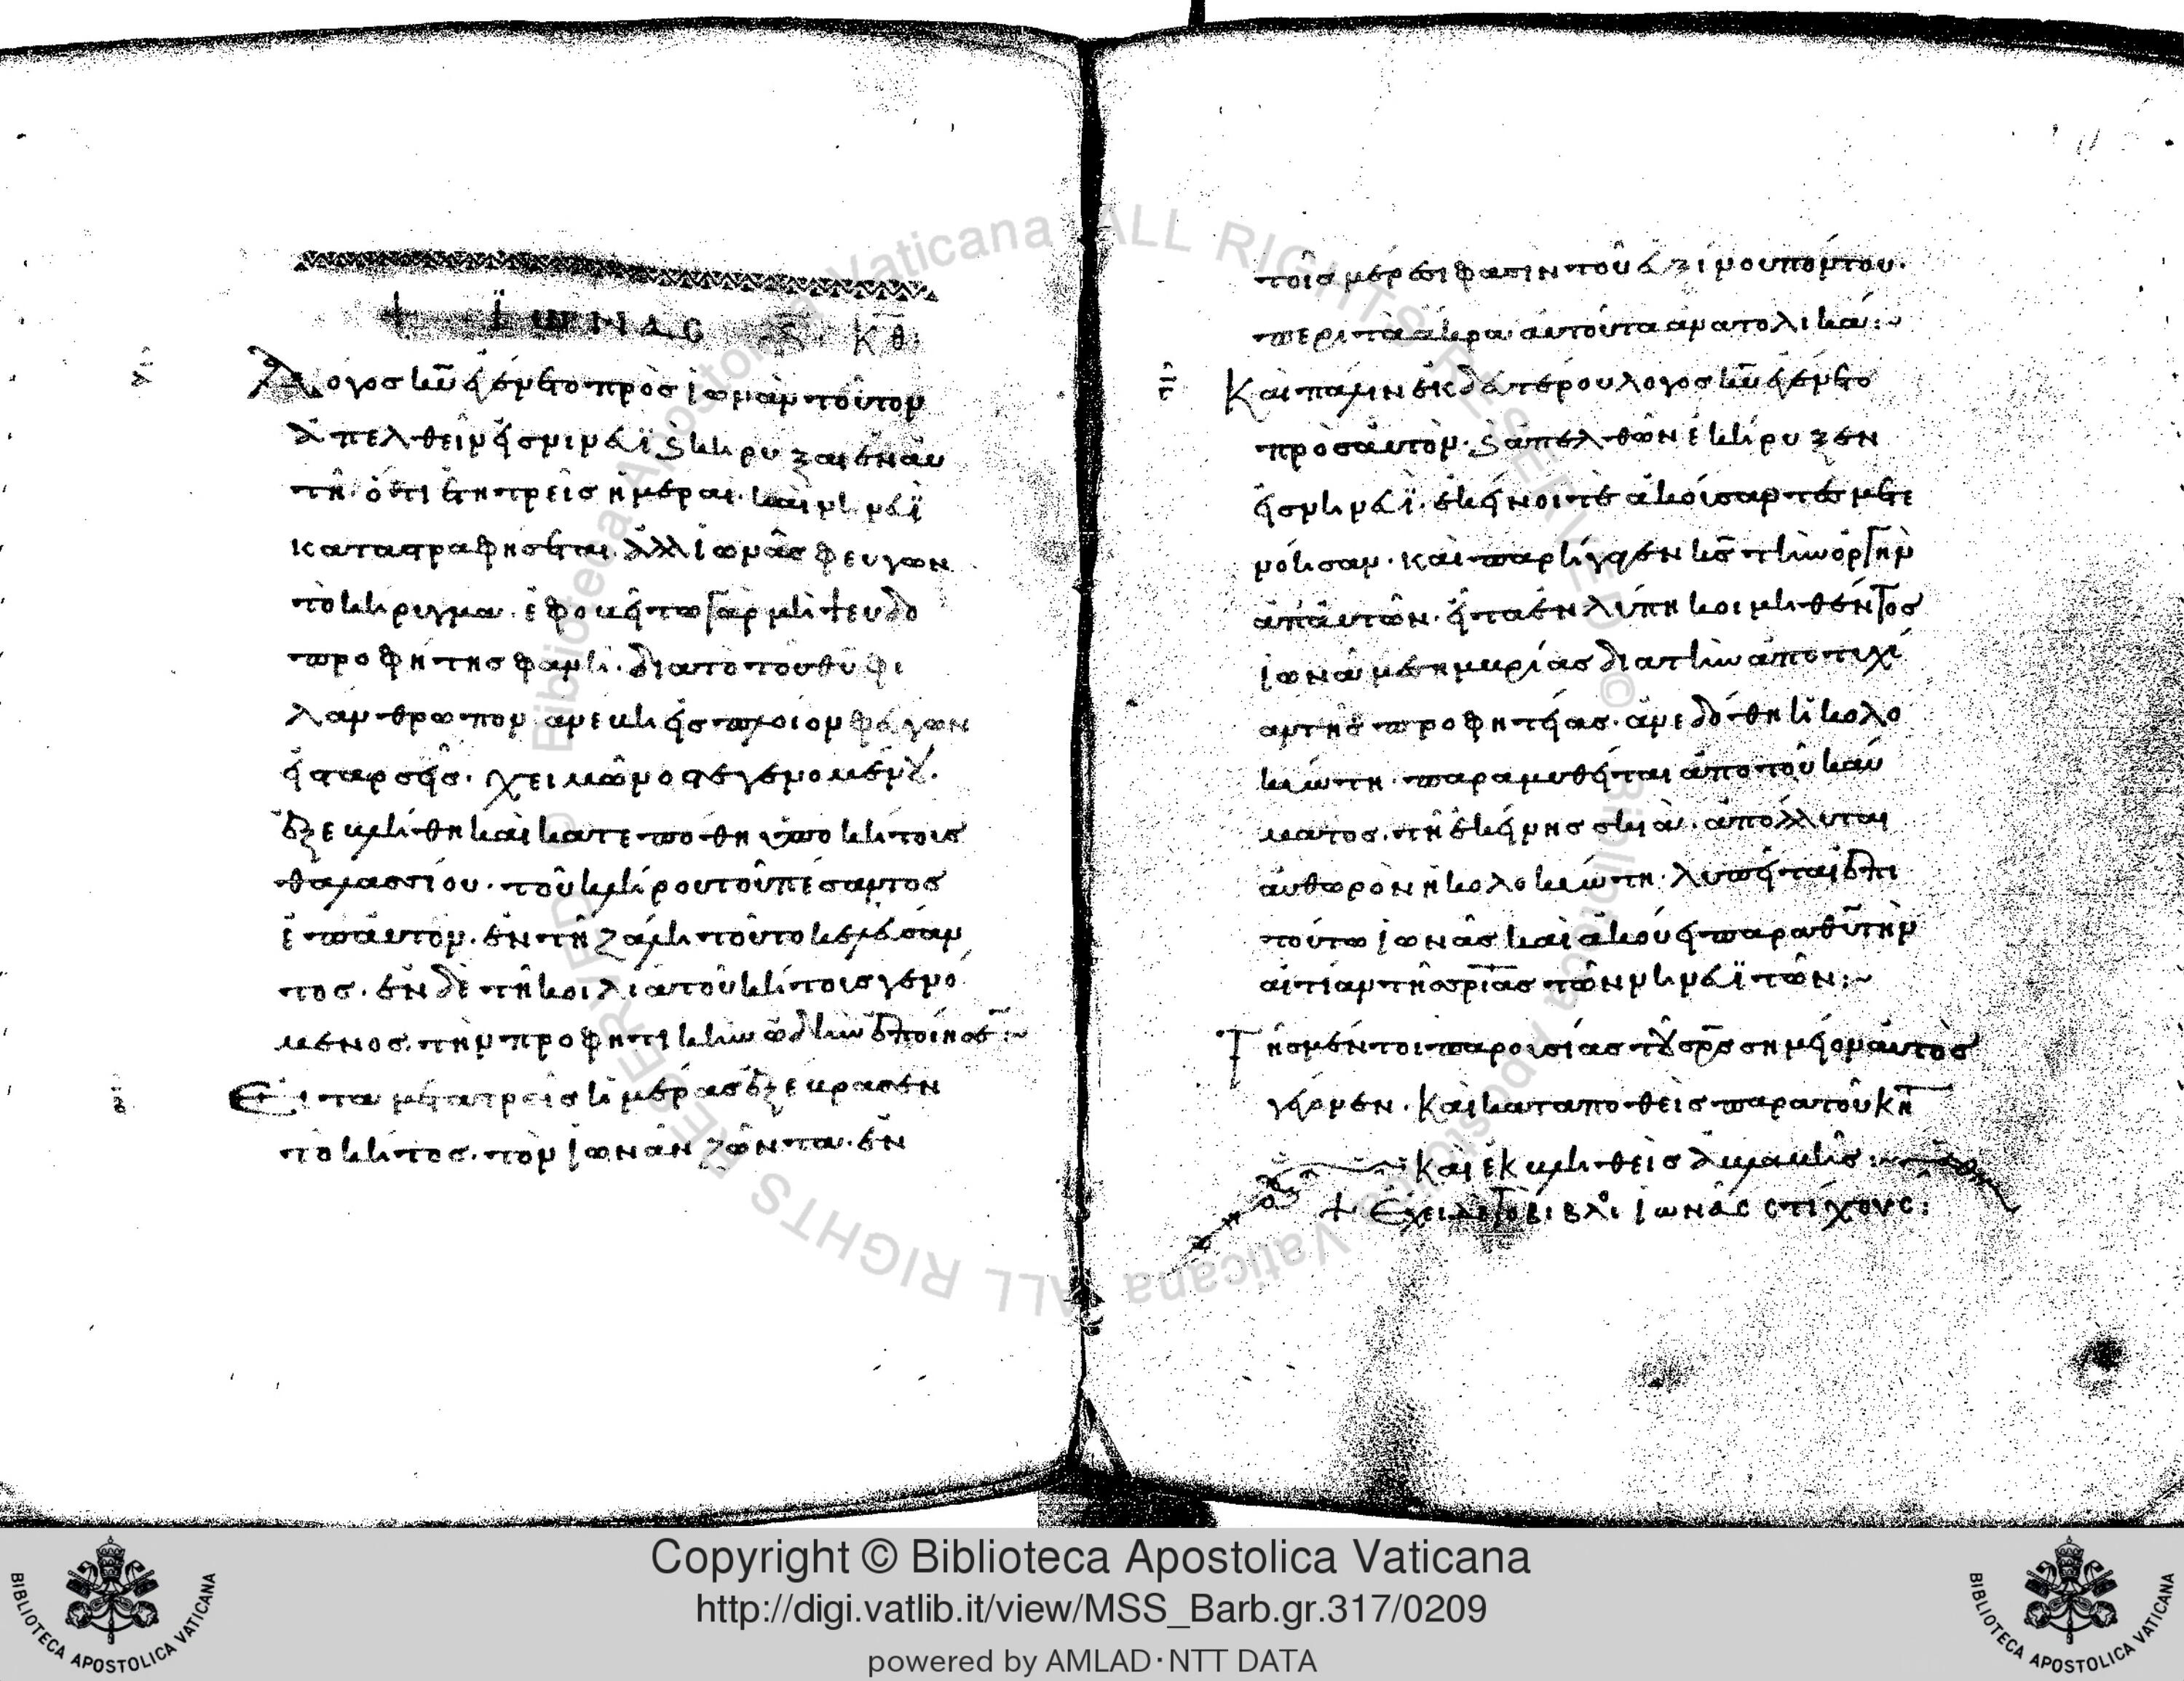 + ΪΩΝΑC ϛ ΚΘ:
α Λόγος κυ ἐγένετο πρὸς ἰωνὰν τοῦτον
ἀπελθεῖν εἰς νινευῒ ϗ κηρύξαι ἐν αὐ
τῆ· ὅτι ἔτι τρεῖς ἡμέραι· καὶ νινευῒ
καταστραφήσεται· ἀλλ ἰωνᾶς φεύγων
τὸ κήρυγμα· ἐφοβεῖτο γὰρ μὴ ψευδο
προφήτης φανῆ· διὰ τὸ τοῦ θυ φι
λάνθρωπον
εἰς θαρσεῖς· χειμῶνος γενομένου·
ἐξεβλήθη καὶ κατεπόθη ὑπὸ κήτους
θαλασσίου· τοῦ κλήρου τοῦ πεσόντος
ἐπ αὐτὸν· ἐν τῆ ζάλη τοῦτο
τος· ἐν δὲ τῆ κοιλία τοῦ κήτους γενό
μενος· τὴν προφητικὴν ὠδὴν ἐποίησε:~
β Εἶτα μετὰ τρεῖς ἡμέρας ἐξέβρασεν
τὸ κῆτος· τὸν ἰωνᾶν ζῶντα· ἐν
τοῖς μέρεσι φασὶν τοῦ εὐξίνου πόντου·
περὶ τὰ ἄκρα αὐτοῦ τὰ ἀνατολικά:~
γ Καὶ πάλιν ἐκ δευτέρου λόγος κυ ἐγένετο
πρὸς αὐτὸν· ϗ ἀπελθὼν ἐκήρυξεν
εἰς νινευῒ· ἐκεῖνοι τὲ ἀκούσαντες μετε
νόησαν· καὶ παρήγαγεν κς τὴν ὀργὴν
ἀπ αὐτῶν· εἶτα ἐν λύπη κοιμηθέντος
ἰωνᾶ μεσημβρίας διὰ τὴν ἀποτυχί
αν τῆς προφητείας· ἀνεδόθη ἡ κολο
κύντη· παραμυθεῖται ἀπὸ τοῦ καύ
ματος· τῆ ἐκείνης σκιᾶ· ἀπόλλυται
αὐθωρὸν ἡ κολοκύντη· λυπεῖται ἐπὶ
τούτω ἰωνᾶς καὶ ἀκούει παρὰ θυ τὴν
αἰτίαν τῆς σριας τῶν νινευϊτῶν:~
Τῆς μέντοι παρουσίας τοῦ σρς σημεῖον αὐτὸς
γέγονεν· καὶ καταποθεὶς παρὰ τοῦ κητ
καὶ ἐκβληθεὶς ἀβλαβὴς:~
+ Ἔχει δὲ τὸ βιβλι ἰωνᾶς στίχους:
Copyright © Biblioteca Apostolica Vaticana
http://digi.vatlib.it/view/MSS_Barb.gr.317/0209
powered by AMLAD·NTT DATA
BIBLIOTECA APOSTOLICA VATICANA
BIBLIOTECA APOSTOLICA VATICANA